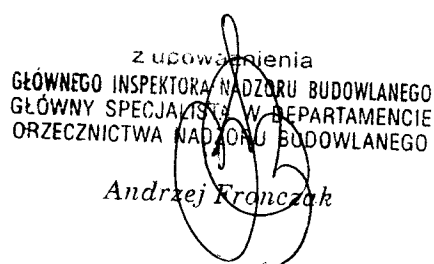 z upoważnienia
GŁÓWNEGO INSPEKTORA NADZORU BUDOWLANEGO
GŁÓWNY SPECJALISTA W DEPARTAMENCIE
ORZECZNICTWA NADZORU BUDOWLANEGO
Andrzej Fronczak